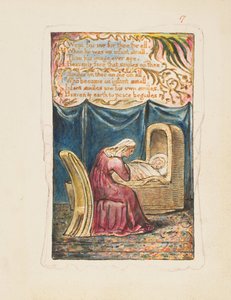 7
Wept for me for thee for all
When he was an infant small
Thou his image ever see.
Heavenly face that smiles on thee
Smiles on thee on me on all
Who became an infant small
Infant smiles are his own smiles.
Heaven & earth to peace beguiles.